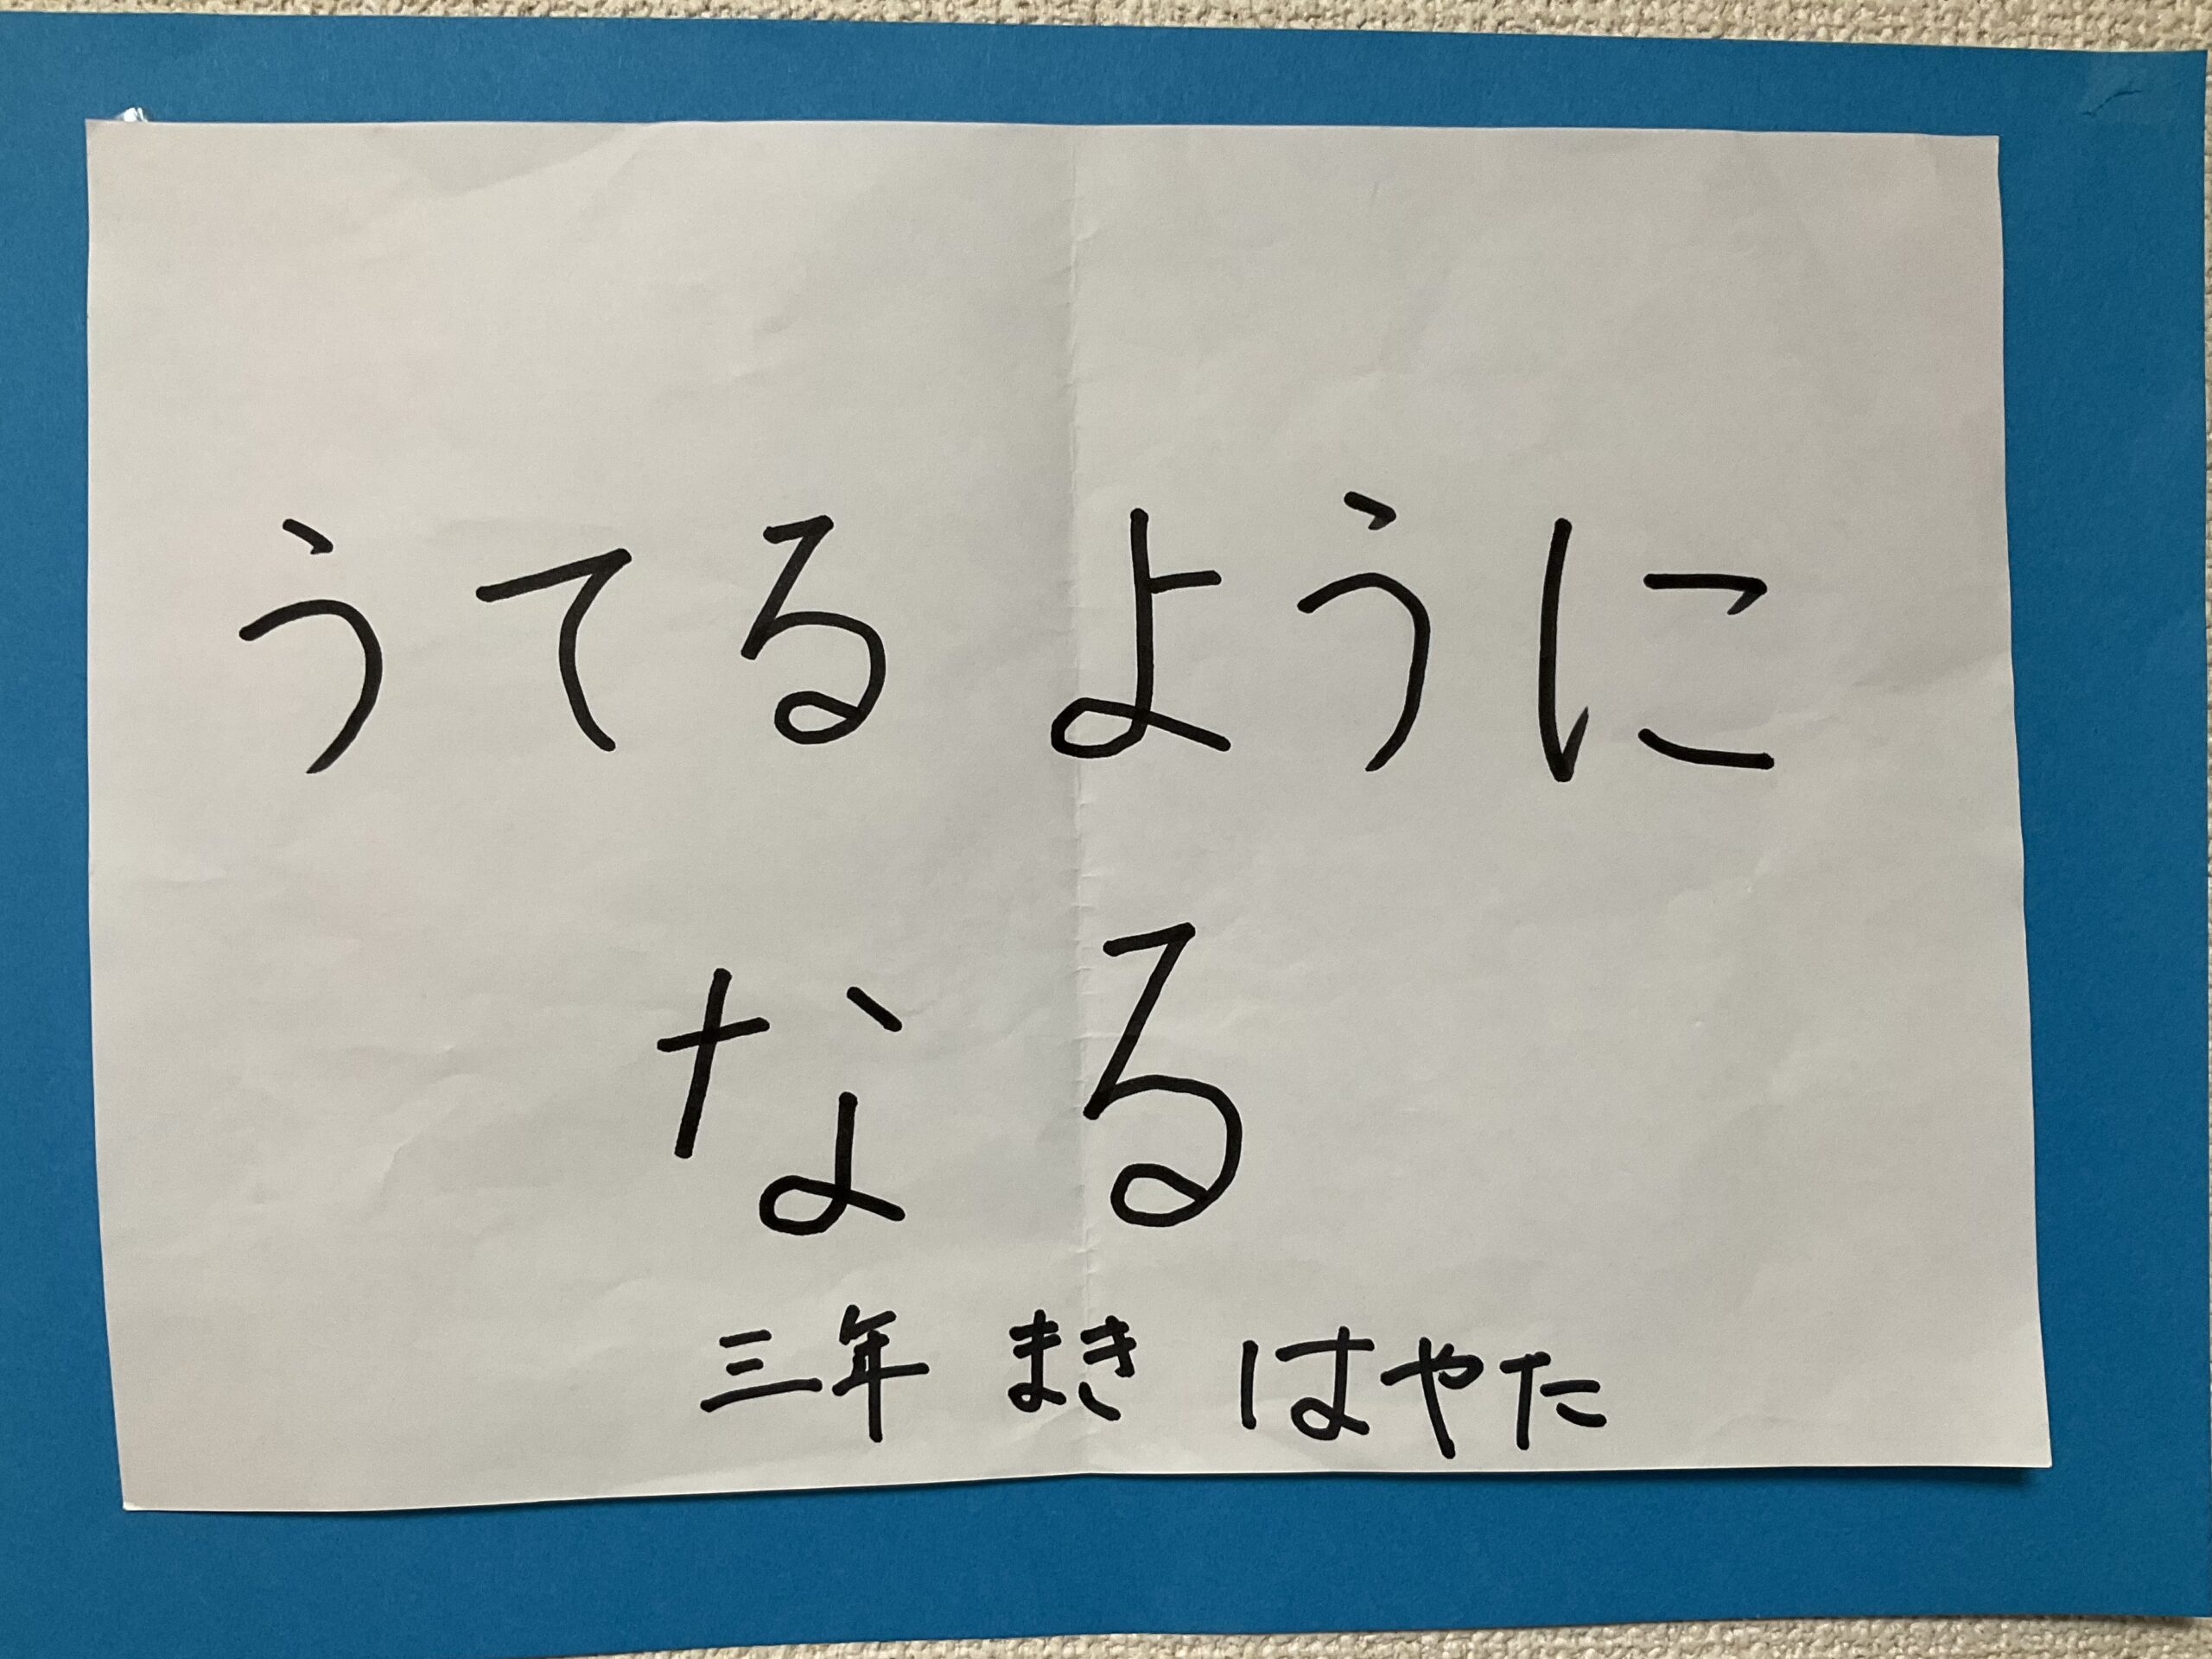 うてるように
なる
三年 まき はやた